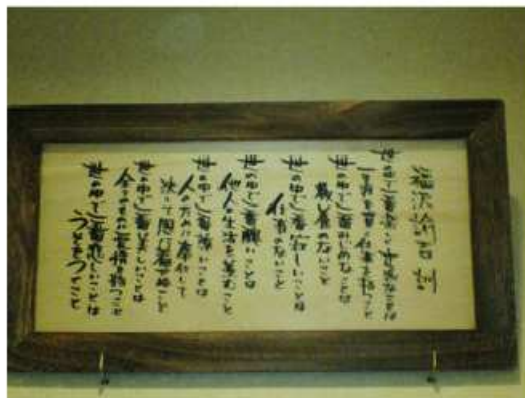 福沢諭吉
世の中で一番楽しく立派なことは
一生涯を貫く仕事を持つこと
世の中で一番みじめなことは
教養のないこと
世の中で一番寂しいことは
仕事のないこと
世の中で一番醜いことは
他人の生活を羨むこと
世の中で一番尊いことは
人のために奉仕して
決して恩に着せぬこと
世の中で一番美しいことは
全てのものに愛情を持つこと
世の中で一番悲しいことは
うそをつくこと